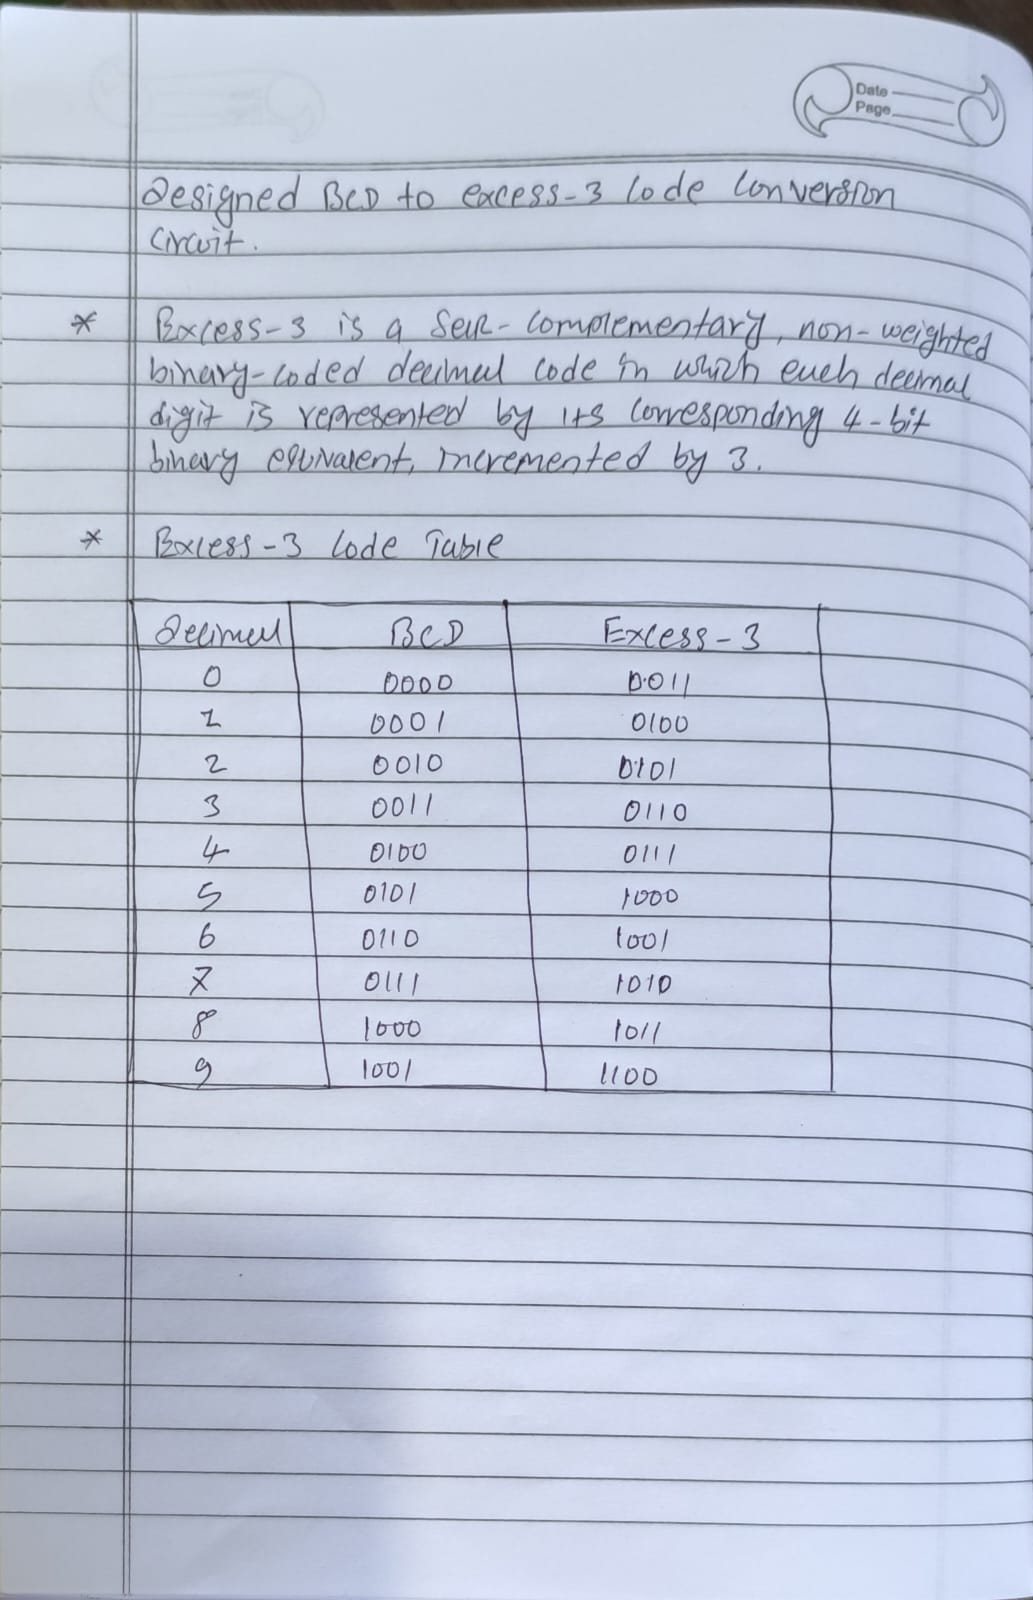 Date
Page
Designed BCD to excess-3 Code Conversion
Circuit.
* Excess-3 is a Self-Complementary, non-weighted
binary-coded decimal code in which each decimal
digit is represented by its corresponding 4-bit
binary equivalent, incremented by 3.
* Excess-3 Code Table
Decimal BCD Excess-3
0 0000 0011
1 0001 0100
2 0010 0101
3 0011 0110
4 0100 0111
5 0101 1000
6 0110 1001
7 0111 1010
8 1000 1011
9 1001 1100